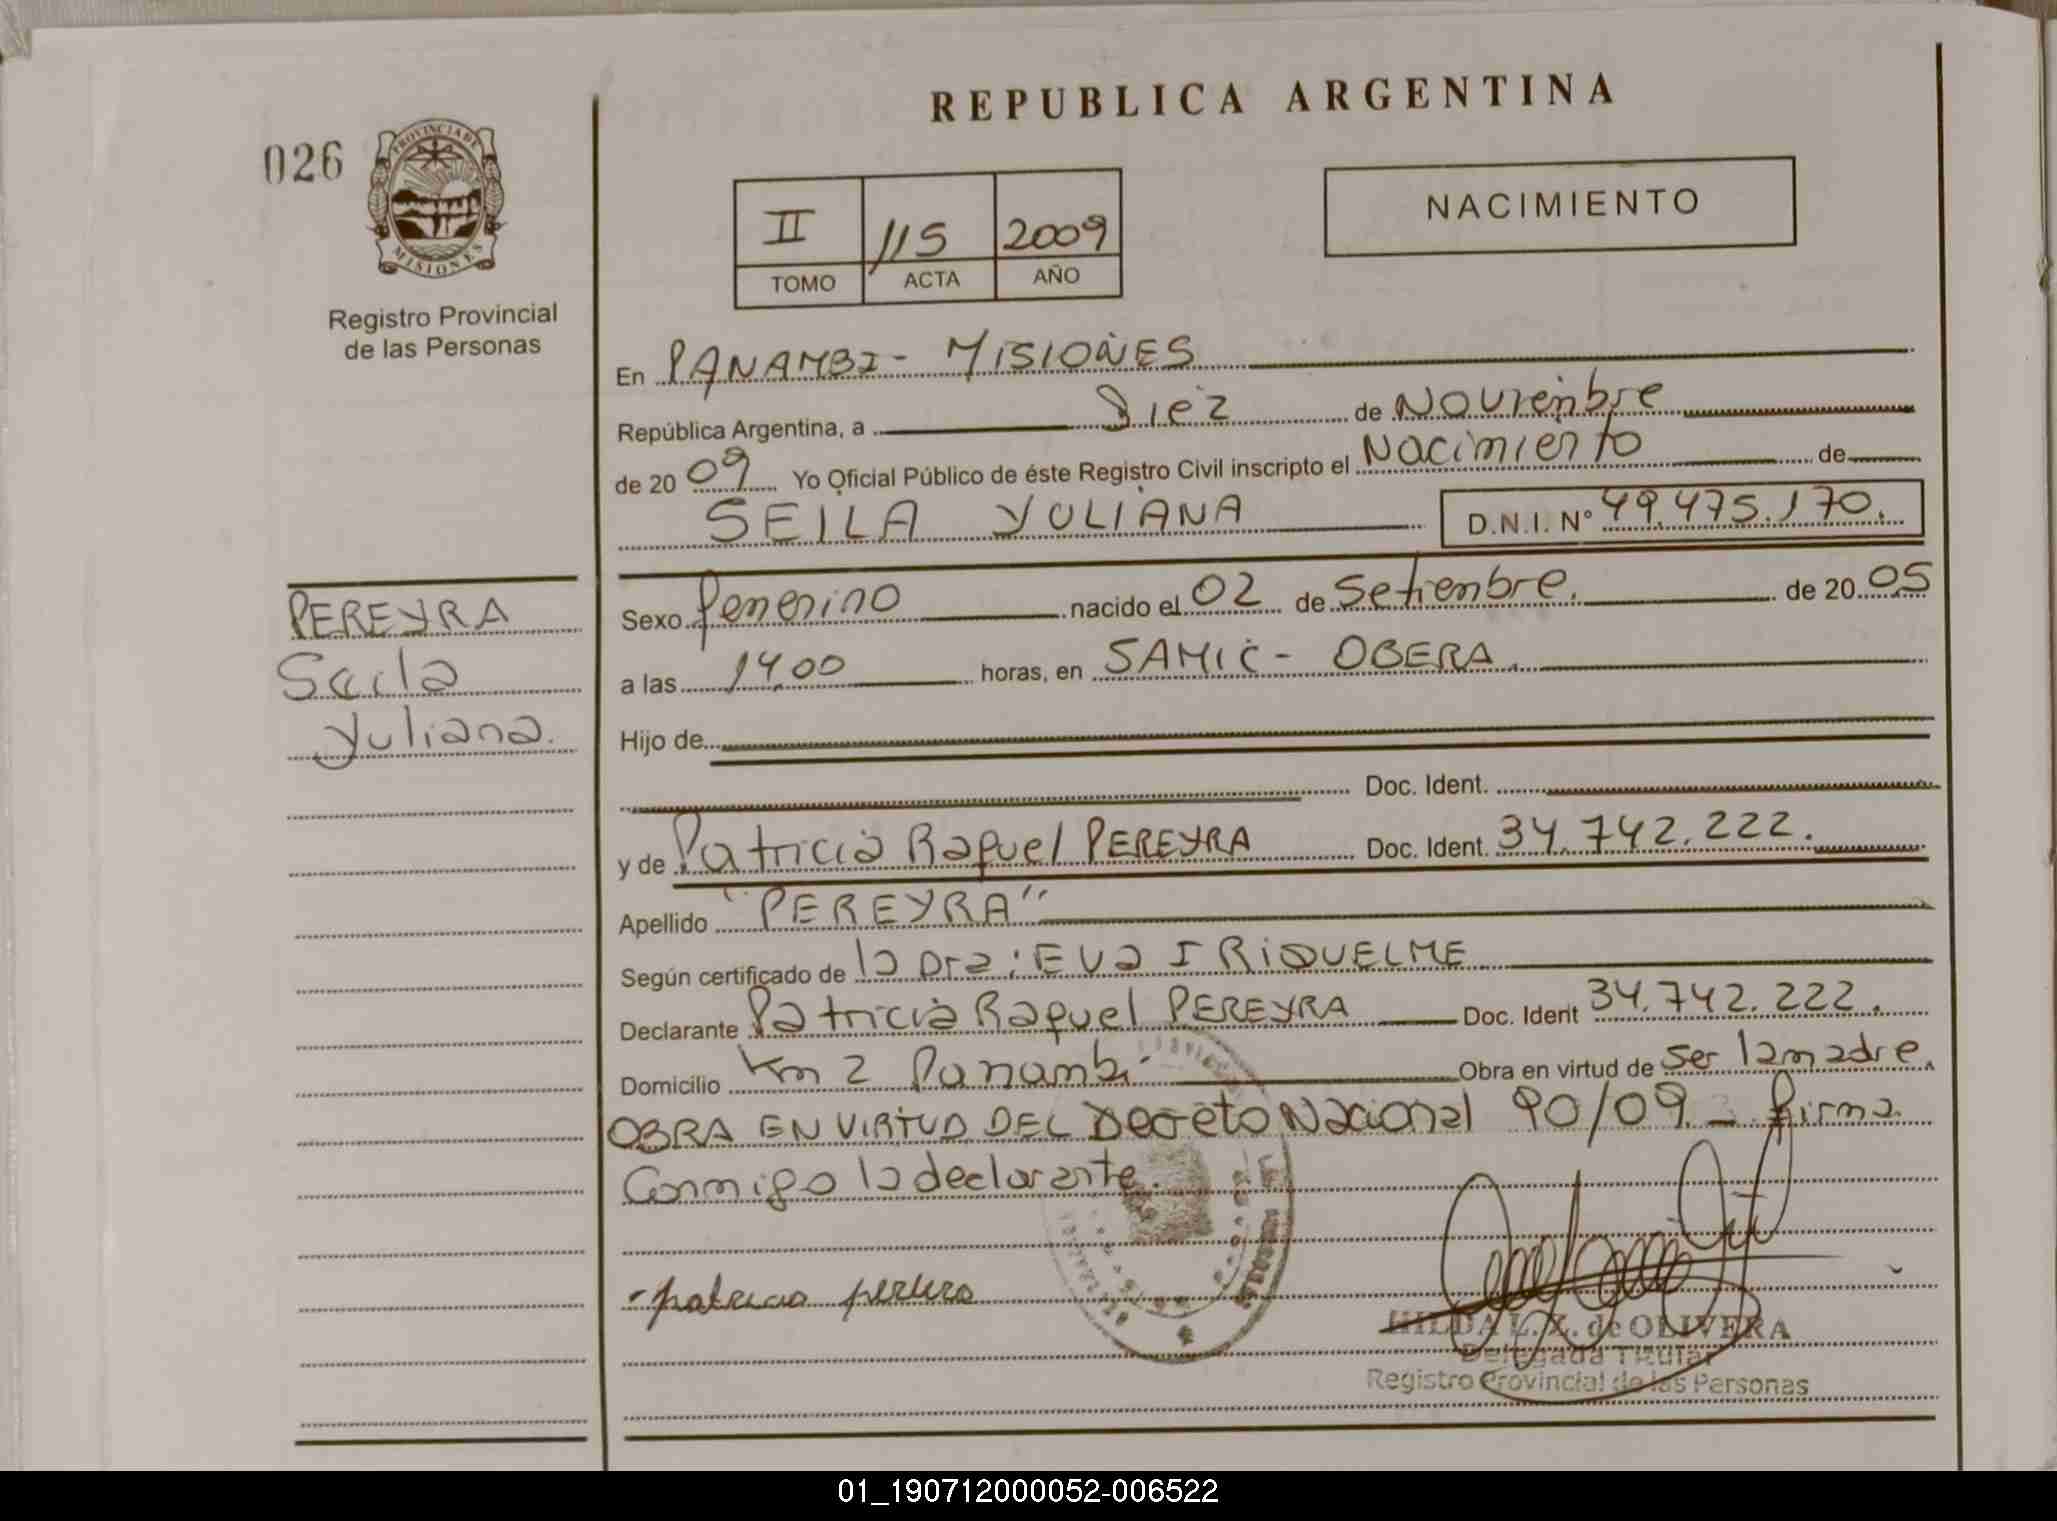 REPUBLICA ARGENTINA
026
PROVINCIA DE
MISIONES
Registro Provincial
de las Personas
II 115 2009
TOMO ACTA AÑO
NACIMIENTO
En PANAMBI - MISIONES
República Argentina, a Diez de Noviembre
de 2009 Yo Oficial Público de éste Registro Civil inscripto el Nacimiento de
SEILA YULIANA D.N.I. Nº 49.475.170.
PEREYRA
Seila
Yuliana.
Sexo femenino nacido el 02 de Setiembre. de 2005
a las 14,00 horas, en SAMIC - OBERA.
Hijo de
Doc. Ident.
y de Patricia Raquel PEREYRA Doc. Ident. 34.742.222.
Apellido "PEREYRA"
Según certificado de la Dra: EVa I RiQUELME
Declarante Patricia Raquel PEREYRA Doc. Ident 34.742.222.
Domicilio Km 2 Panambi Obra en virtud de ser la madre.
OBRA EN VIRTUD DEL Decreto Nacional 90/09.- firma
Conmigo la declarante.
-patricia
HILDA L. Z. de OLIVERA
Delegada Titular
Registro Provincial de las Personas
01_190712000052-006522